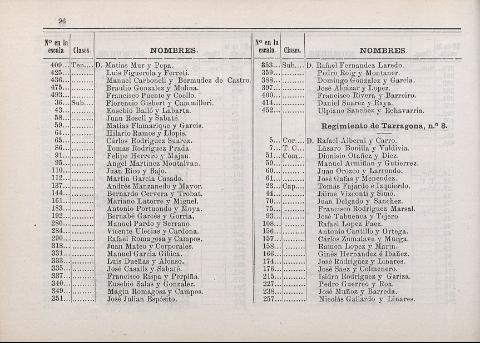 96
Nº en la escala. Clases. NOMBRES.
409... Ten.... D. Matías Mur y Pepa.
425... Luis Figuerola y Ferreti.
436... Manuel Carbonell y Bermudez de Castro.
475... Braulio Gonzalez y Molina.
493... Francisco Puente y Coello.
36... Sub.... Florencio Gisbert y Cammilleri.
43... Eusebio Balló y Labarta.
58... Juan Rosell y Sabaté.
59... Matías Flamarique y García.
64... Hilario Ramos y Llopis.
65... Cárlos Rodriguez Suarez.
86... Tomás Rodriguez Prada.
91... Felipe Herrero y Majan.
95... Angel Martinez Montalvan.
110... Juan Rios y Bajo.
112... Martin García Casado.
137... Andrés Manzanedo y Mayor.
144... Bernardo Cervera y Trobat.
161... Mariano Latorre y Miguel.
183... Antonio Portuondo y Moya.
192... Bernabé Garcés y Gorría.
280... Manuel Pardo y Serrano.
284... Vicente Ulecias y Cardona.
290... Rafael Romagosa y Campos.
318... Juan Mateo y Corporales.
331... Manuel García Gilbica.
333... Luis Dueñas y Alonso.
335... José Casalis y Sabaté.
337... Francisco Rispa y Perpiñá.
340... Eusebio Salas y Gonzalez.
349... Magin Romagosa y Campos.
351... José Julian Espósito.
Nº en la escala. Clases. NOMBRES.
353... Sub... D. Rafael Fernandez Laredo.
359... Pedro Roig y Montaner.
388... Domingo Gonzalez y García.
397... José Alcázar y Lopez.
400... Francisco Rivera y Barreiro.
414... Daniel Suarez y Raya.
452... Ulpiano Sanchez y Echavarría.
Regimiento de Tarragona, n.º 8.
5... Cor... D. Rafael Alberni y Carro.
7... T. C... Lázaro Bonilla y Valdivia.
51... Com... Dionisio Otáñez y Diez.
59... Manuel Armiñan y Gutierrez.
60... Juan Orozco y Larrondo.
61... José Cañas y Menendez.
23... Cap... Tomás Fajardo é Izquierdo.
44... Jaime Visconti y Simó.
70... Juan Delgado y Sanchez.
75... Francisco Rodriguez Marsal.
93... José Tabuenca y Tejero
108... Rafael Lopez Faez.
156... Antonio Cantillo y Ortega.
157... Cárlos Zumalave y Murga.
158... Ramon Lopez y Marin.
166... Ginés Hernandez é Ibañez.
174... José Rodriguez y Linares.
176... José Baez y Colmenero.
215... Isidro Rodriguez y Gariza.
227... Pedro Guerrero y Roa.
238... José Muñoz y Barreda.
257... Nicolás Gallardo y Linares.